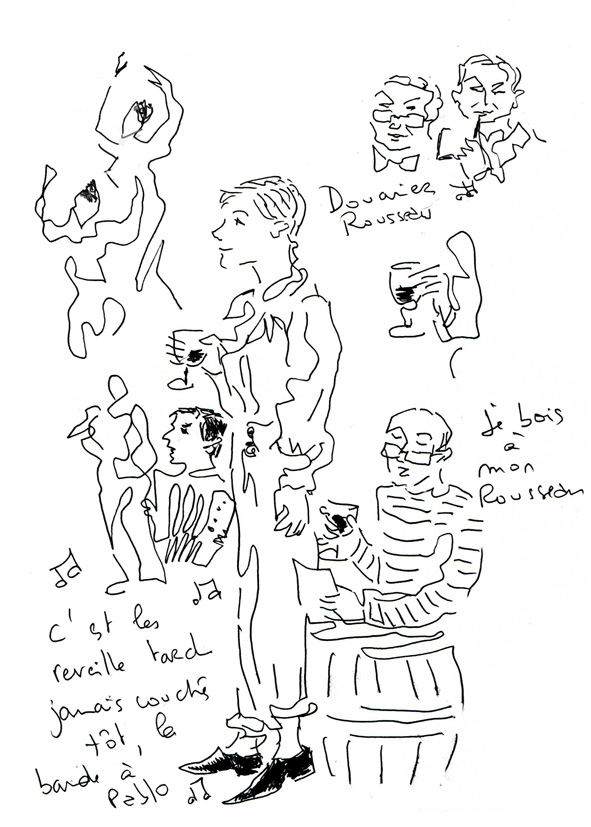 Douanier
Rousseau
je bois
à
mon
Rousseau
c'est les
reveille tard
jamais couchés
tôt, la
bande à
Pablo